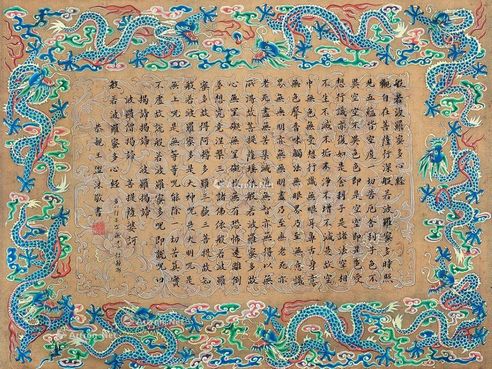 般若波羅蜜多心經
觀自在菩薩行深般若波羅蜜多時照
見五蘊皆空度一切苦厄舍利子色不
異空空不異色色即是空空即是色受
想行識亦復如是舍利子是諸法空相
不生不滅不垢不淨不增不減是故空
中無色無受想行識無眼耳鼻舌身意
無色聲香味觸法無眼界乃至無意識
界無無明亦無無明盡乃至無老死亦無
老死盡無苦集滅道無智亦無得以無
所得故菩提薩埵依般若波羅蜜多故
心無罣礙無罣礙故無有恐怖遠離顛倒
夢想究竟涅槃三世諸佛依般若波羅
蜜多故得阿耨多羅三藐三菩提故知
般若波羅蜜多是大神咒是大明咒是
無上咒是無等等咒能除一切苦真實
不虛故說般若波羅蜜多咒即說咒曰
揭諦揭諦 波羅揭諦
波羅僧揭諦 菩提薩婆訶
般若波羅蜜多心經
沐敬書